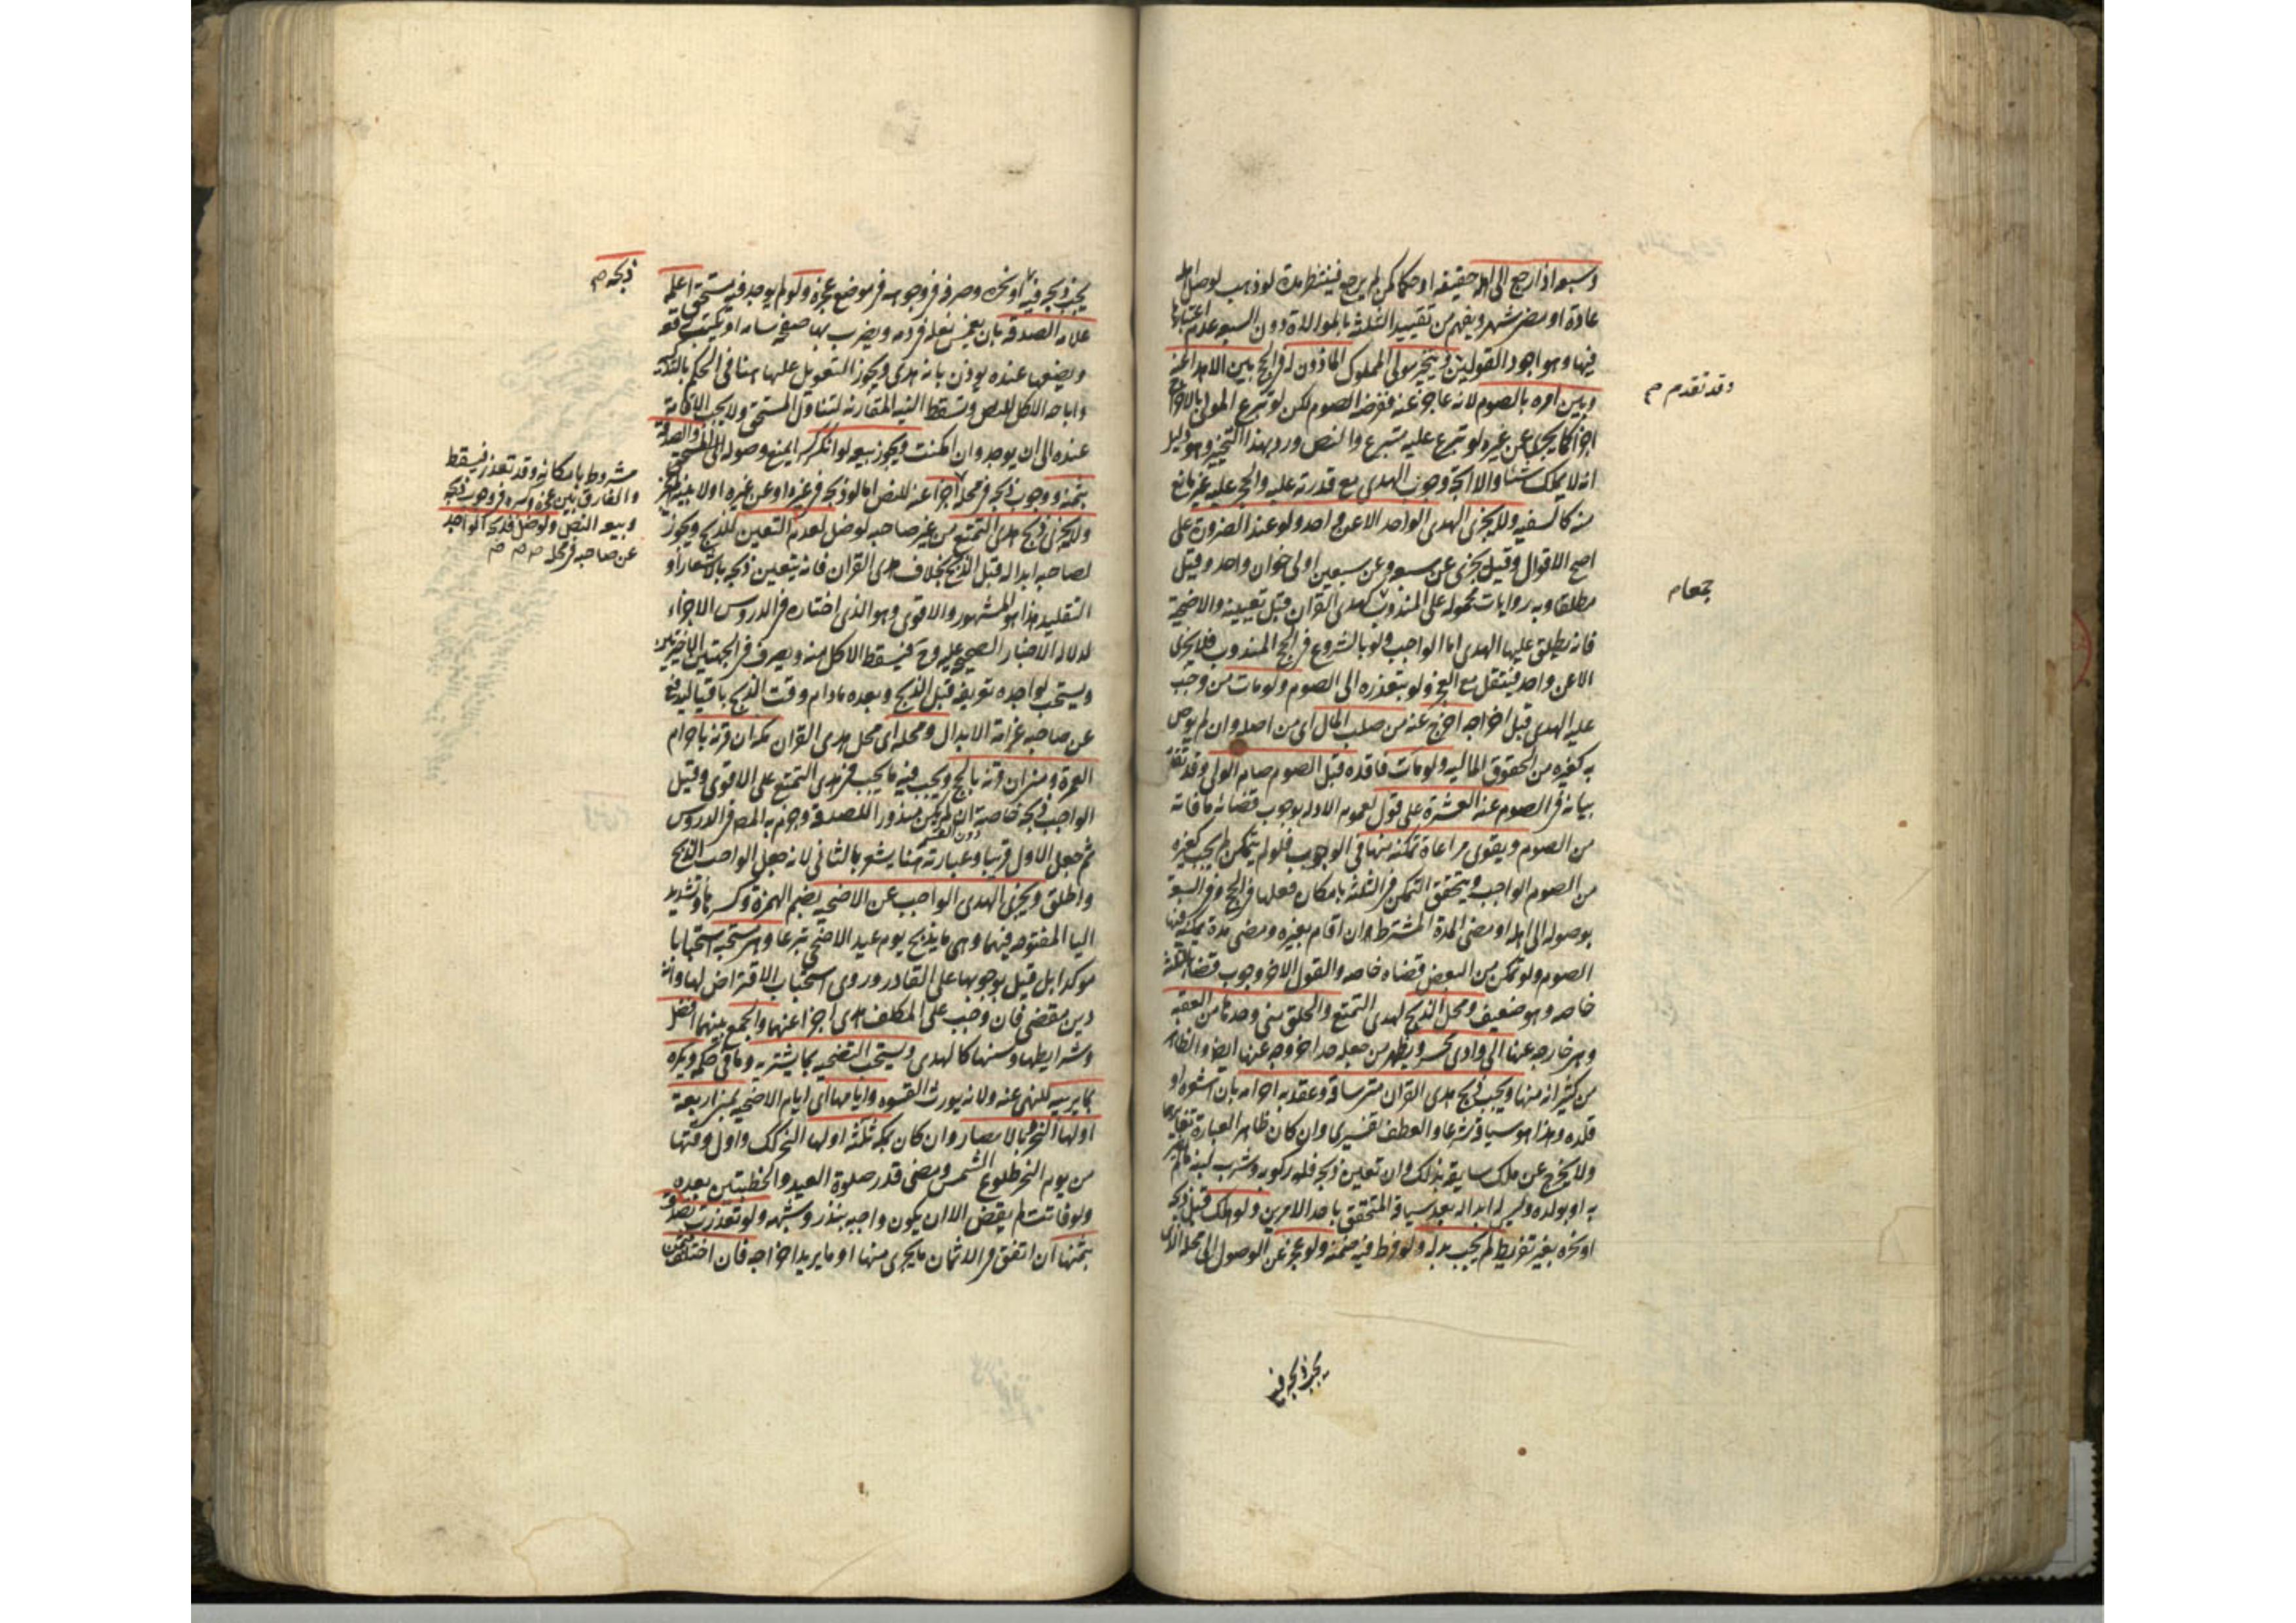 وسبعة اذا رجع الى اهله حقيقة او حكما كمن لم يرجع فينتظر مدة لو ذهب لوصل اهله
عادة او مضى شهر ويفهم من تقييد الثلثة بالموالاة دون السبعة عدم اعتبارها
فيها وهو اجود القولين ويتخير مولى المملوك الماذون له فى الحج بين الاهدا عنه
وبين امره بالصوم لانه عاجز عنه ففرضه الصوم لكن لو تبرع المولى بالاخراج
اجزا كما يجزى عن غيره لو تبرع عليه متبرع والنص ورد بهذا التخيير وهو دليل
انه لا يملك شئا والا اتجه وجوب الهدى مع قدرته عليه والحجر عليه غير مانع
منه كالسفيه ولا يجزى الهدى الواحد الا عن واحد ولو عند الضرورة على
اصح الاقوال وقيل يجزى عن سبعة وعن سبعين اولى خوان واحد وقيل
مطلقا وبه روايات محمولة على المندوب كهدى القران قبل تعيينه والاضحية
فانه يطلق عليها الهدى اما الواجب ولو بالشروع فى الحج المندوب فلا يجزى
الا عن واحد فينتقل مع العجز ولو بتعذره الى الصوم ولو مات من وجب
عليه الهدى قبل اخراجه اخرج عنه من صلب المال اى من اصله وان لم يوص
به كغيره من الحقوق المالية ولو مات فاقده قبل الصوم صام الولى وقد تقدم
بيانه فى الصوم عنه العشرة على قول لعموم الادلة بوجوب قضائه ما فاته
من الصوم ويقوى مراعاة تمكنه منها فى الوجوب فلو لم يتمكن لم يجب كغيره
من الصوم الواجب ويتحقق التمكن فى الثلثة بامكان فعلها فى الحج وفى السبعة
بوصوله الى اهله او مضى المدة المشترطة ان اقام بغيره ومضى مدة يمكنه فيها
الصوم ولو تمكن من البعض قضاه خاصة والقول الاخر وجوب قضاء الثلثة
خاصة وهو ضعيف ومحل الذبح لهدى التمتع والحلق منى وحدها من العقبة
وهى خارجة عنها الى وادى محسر ويظهر من جعله حدا خروجه عنها ايضا والظاهر
من كثير انه منها ويجب ذبح هدى القران متى ساقه وعقد به احرامه بان اشعره او
قلده وهذا هو سياقه شرعا والعطف تفسيرى وان كان ظاهر العبارة تغايرهما
ولا يخرج عن ملك سايقه بذلك وان تعين ذبحه فله ركوبه وشرب لبنه ما لم يضر
به او بولده وليس له ابداله بعد سياقه المتحقق باحد الامرين ولو هلك قبل ذبحه
او نحره بغير تفريط لم يجب بدله ولو فرط فيه ضمنه ولو عجز عن الوصول الى محله الذى
يجب ذبحه فيه
وقد تقدم م
يجب ذبحه فيه او نحره وصرفه فى وجوهه فى موضع عجزه ولو لم يوجد فيه مستحق اعلمه
علامة الصدقة بان يغمس نعله فى دمه ويضرب بها صفحة سنامه او يكتب رقعة
ويضعها عنده يوذن بانه هدى ويجوز التعويل عليها هنا فى الحكم بالتذكية
واباحة الاكل للنص وتسقط النية المقارنة لتناول المستحق ولا يجب الاقامة
عنده الى ان يوجد وان امكنت ويجوز بيعه لو انكسر كسرا يمنع وصوله الى المستحق والصدقة
بثمنه ووجوب ذبحه فى محله اجزا عنه للنص اما لو ذبحه فى غيره او عن غيره او لا بنيته لم يجز
ولا يجزى ذبح هدى التمتع من غير صاحبه لو ضل لعدم التعين للذبح ويجوز
لصاحبه ابداله قبل الذبح بخلاف هدى القران فانه يتعين ذبحه بالاشعار او
التقليد هذا هو المشهور والاقوى وهو الذى اختاره فى الدروس الاجزاء
لدلالة الاخبار الصحيحة عليه وح فيسقط الاكل منه ويصرف فى الجهتين الاخيرتين
ويستحب لواجده تعريفه قبل الذبح وبعده مادام وقت الذبح باقيا ليدفع
عن صاحبه غرامة الابدال ومحله اى محل هدى القران مكة ان قرنه باحرام
العمرة ومنى ان قرنه بالحج ويجب فيه ما يجب فى هدى التمتع على الاقوى وقيل
الواجب ذبحه خاصة ان لم يكن منذور اللصدقة وجزم به المصه فى الدروس
ثم جعل الاول قريبا وعبارته هنا يشعر بالثانى لانه جعل الواجب الذبح
واطلق ويجزى الهدى الواجب عن الاضحية بضم الهمزة وكسرها وتشديد
اليا المفتوحة فيهما وهى ما يذبح يوم عيد الاضحى تبرعا وهى مستحبة استحبابا
موكدا بل قيل بوجوبها على القادر وروى استحباب الاقتراض لها وانه
دين مقضى فان وجب على المكلف هدى اجزا عنهما والجمع بينهما افضل
وشرايطها وسننها كالهدى ويستحب التضحية بما يشتريه وما فى حكمه ويكره
بما يربيه للنهى عنه ولانه يورث القسوة وايامها اى ايام الاضحية بمنى اربعة
اولها النحر وبالامصار وان كان بمكة ثلثة اولها النحر كذلك واول وقتها
من يوم النحر طلوع الشمس ومضى قدر صلوة العيد والخطبتين بعده
ولو فاتت لم يقض الا ان يكون واجبة بنذر وشبهه ولو تعذرت تصدق
بثمنها ان اتفق فى الاثمان ما يجزى منها او ما يريد اخراجه فان اختلفت فثمن
ذبحه م
مشروط بامكانه وقد تعذر فيسقط
والفارق بين عجزه وكسره فى وجوب ذبحه
وبيعه النص ولو ضل فذبحه الواجد
عن صاحبه فى محله م م م